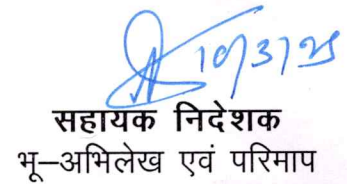 10/3/25
सहायक निदेशक
भू-अभिलेख एवं परिमाप